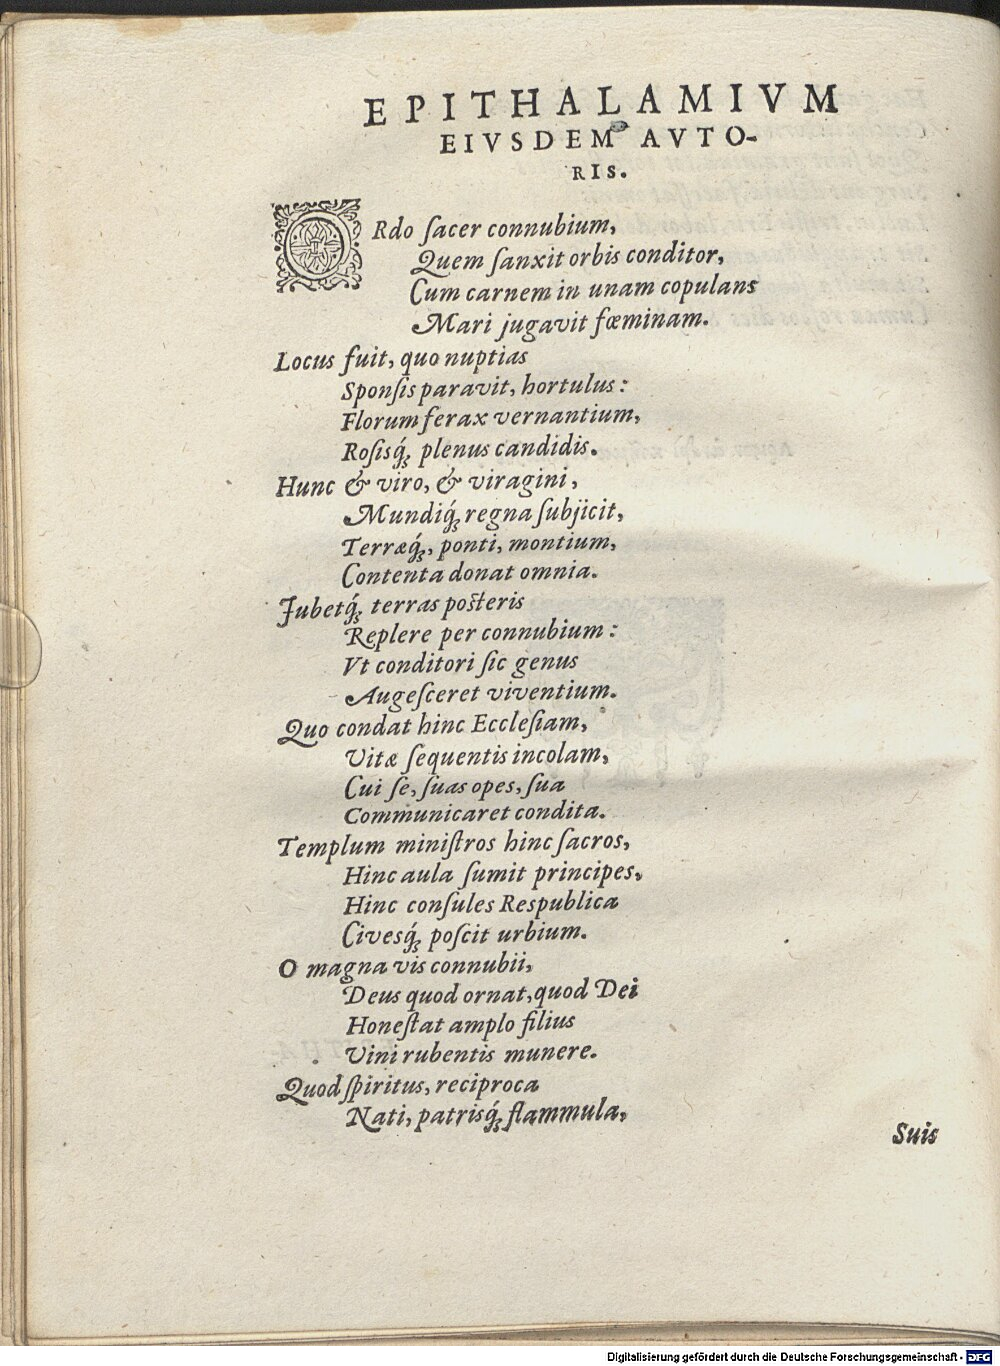 EPITHALAMIVM
EIVSDEM AVTO-
RIS.
ORdo ſacer connubium,
Quem ſanxit orbis conditor,
Cum carnem in unam copulans
Mari jugavit fœminam.
Locus fuit, quo nuptias
Sponſis paravit, hortulus:
Florum ferax vernantium,
Roſisq́; plenus candidis.
Hunc & viro, & viragini,
Mundiq́; regna ſubjicit,
Terræq́;, ponti, montium,
Contenta donat omnia.
Jubetq́; terras poſteris
Replere per connubium:
Vt conditori ſic genus
Augeſceret viventium.
Quo condat hinc Eccleſiam,
Vitæ ſequentis incolam,
Cui ſe, ſuas opes, ſua
Communicaret condita.
Templum miniſtros hinc ſacros,
Hinc aula ſumit principes,
Hinc conſules Respublica
Civesq́; poſcit urbium.
O magna vis connubii,
Deus quod ornat, quod Dei
Honeſtat amplo filius
Vini rubentis munere.
Quod ſpiritus, reciproca
Nati, patrisq́; flammula,
Suis
Digitalisierung gefördert durch die Deutsche Forschungsgemeinschaft - DFG